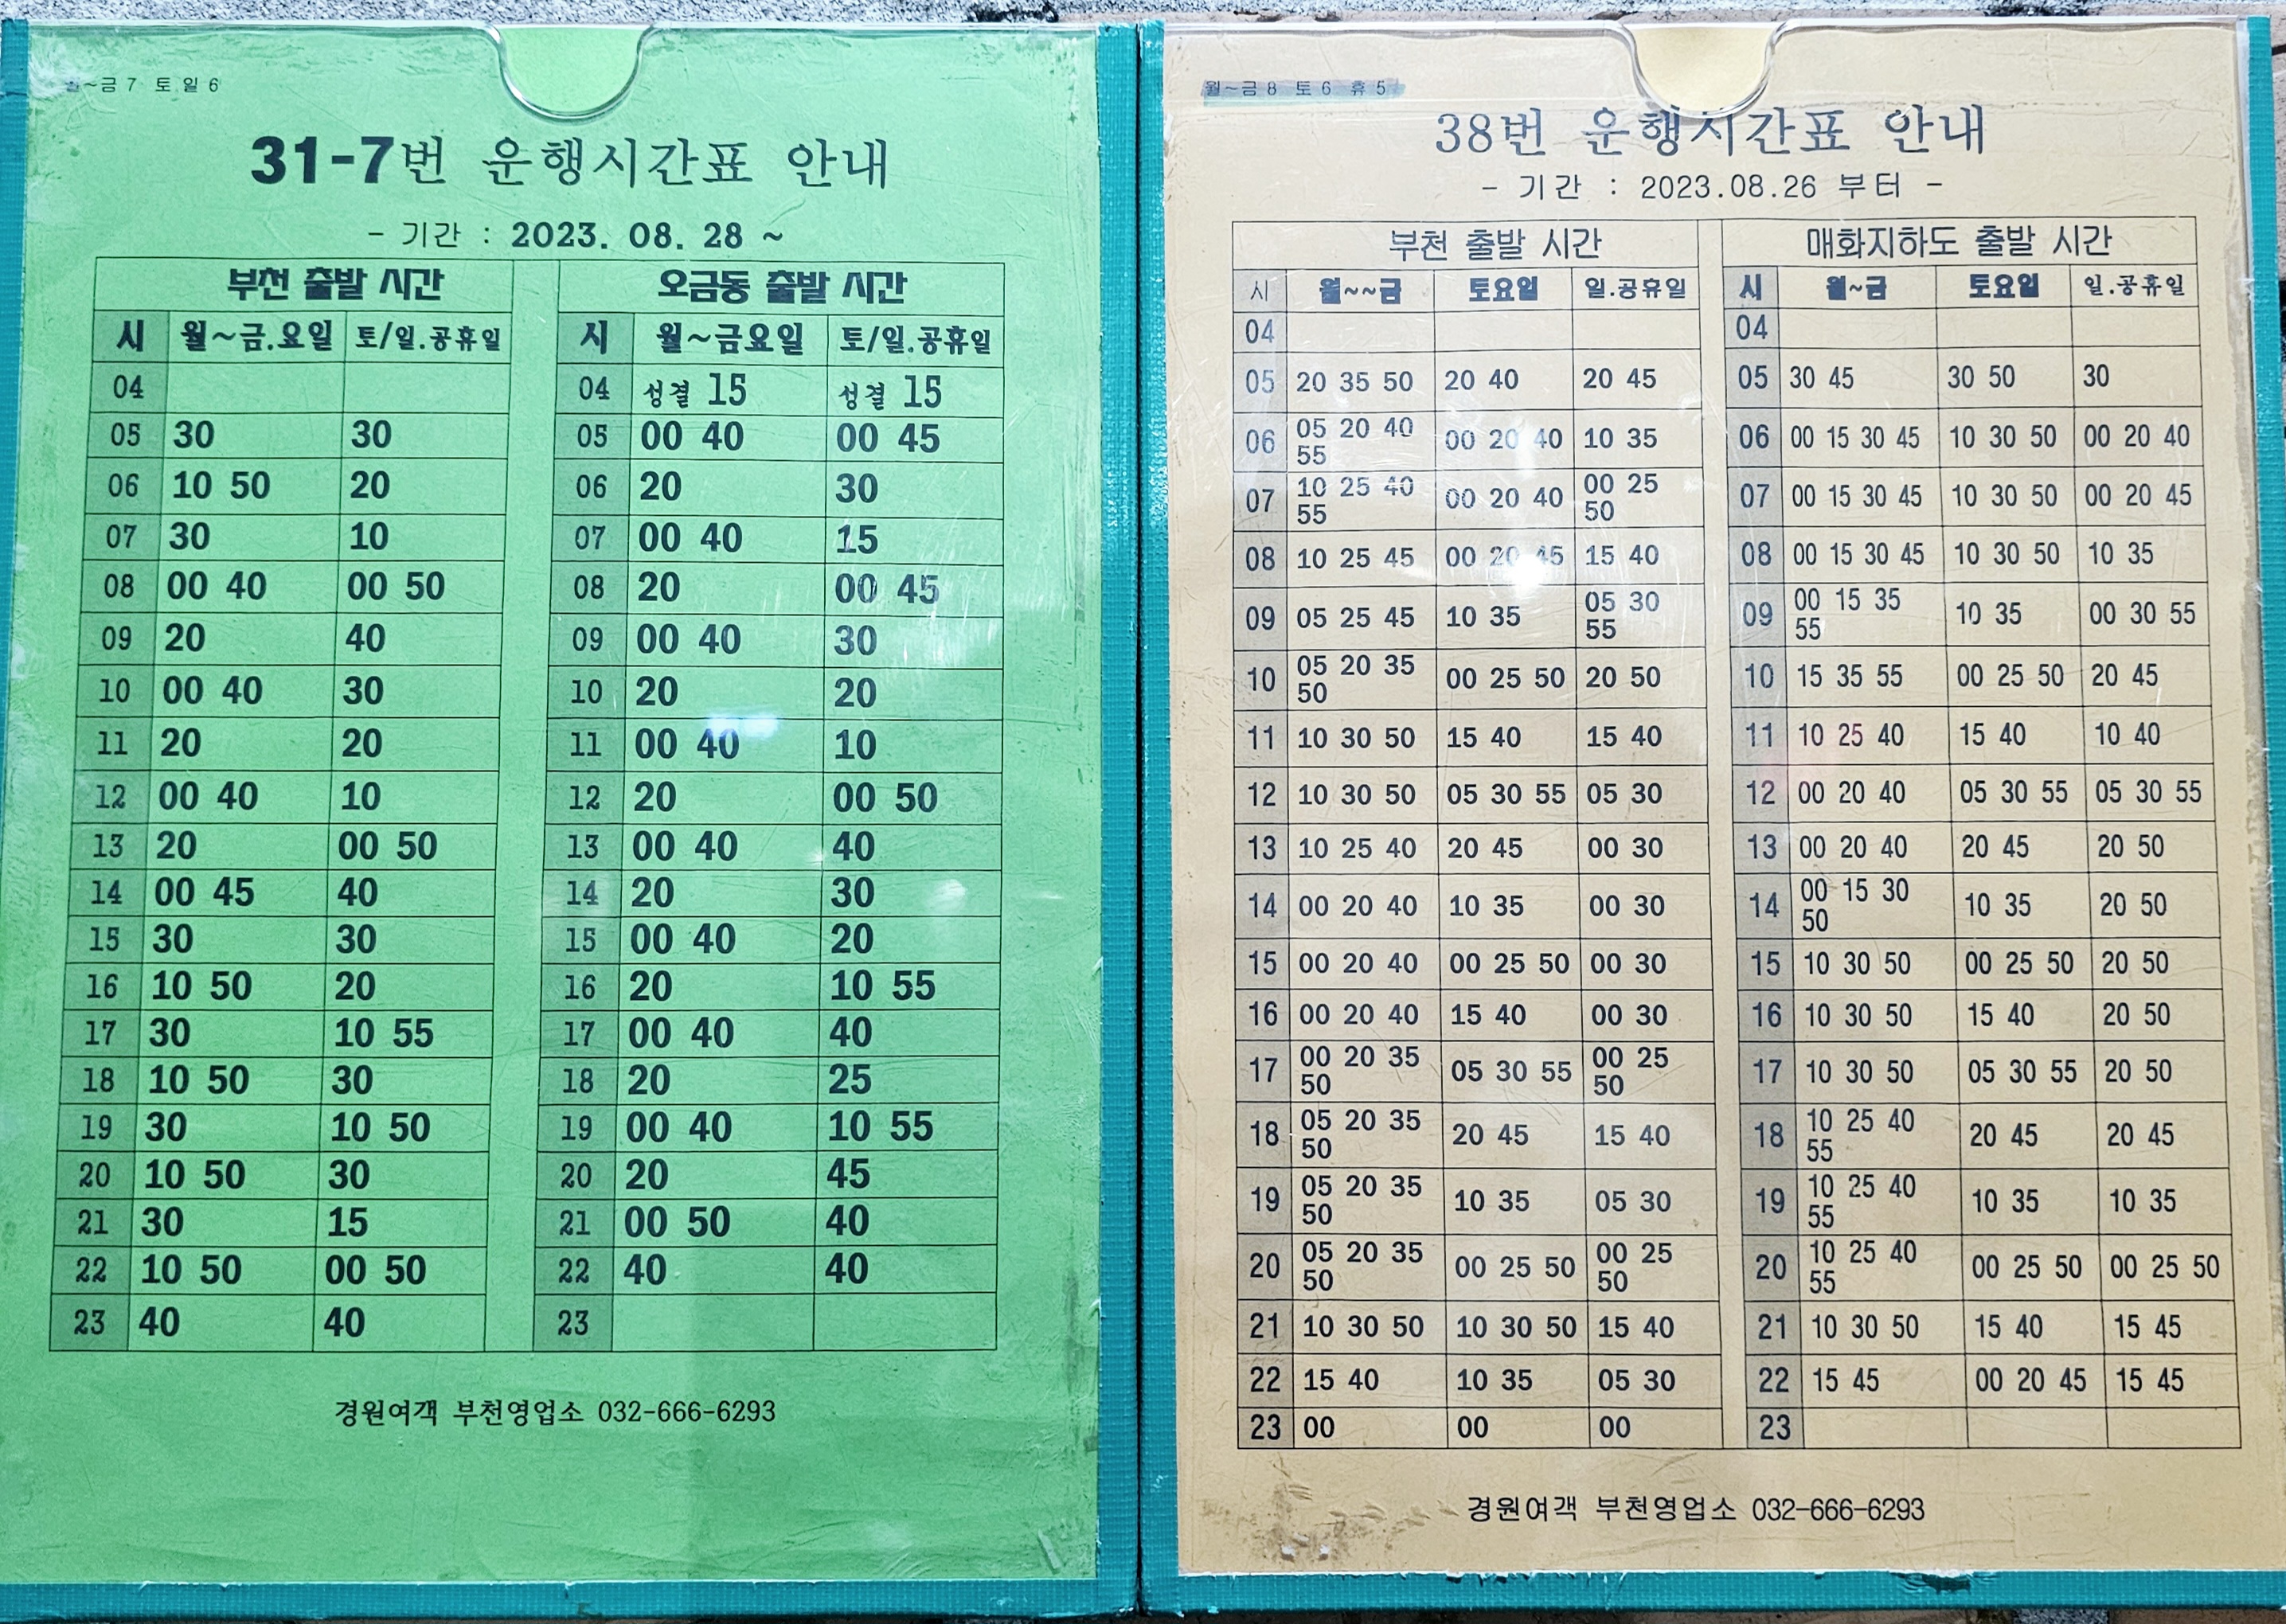 월~금 7 토 일 6
31-7번 운행시간표 안내
- 기간 : 2023. 08. 28 ~
부천 출발 시간 오금동 출발 시간
시 월~금.요일 토/일.공휴일 시 월~금요일 토/일.공휴일
04 04 성결 15 성결 15
05 30 30 05 00 40 00 45
06 10 50 20 06 20 30
07 30 10 07 00 40 15
08 00 40 00 50 08 20 00 45
09 20 40 09 00 40 30
10 00 40 30 10 20 20
11 20 20 11 00 40 10
12 00 40 10 12 20 00 50
13 20 00 50 13 00 40 40
14 00 45 40 14 20 30
15 30 30 15 00 40 20
16 10 50 20 16 20 10 55
17 30 10 55 17 00 40 40
18 10 50 30 18 20 25
19 30 10 50 19 00 40 10 55
20 10 50 30 20 20 45
21 30 15 21 00 50 40
22 10 50 00 50 22 40 40
23 40 40 23
경원여객 부천영업소 032-666-6293
월~금 8 토 6 휴 5
38번 운행시간표 안내
- 기간 : 2023.08.26 부터 -
부천 출발 시간 매화지하도 출발 시간
시 월~~금 토요일 일.공휴일 시 월~금 토요일 일.공휴일
04 04
05 20 35 50 20 40 20 45 05 30 45 30 50 30
06 05 20 40 55 00 20 40 10 35 06 00 15 30 45 10 30 50 00 20 40
07 10 25 40 55 00 20 40 00 25 50 07 00 15 30 45 10 30 50 00 20 45
08 10 25 45 00 20 45 15 40 08 00 15 30 45 10 30 50 10 35
09 05 25 45 10 35 05 30 55 09 00 15 35 55 10 35 00 30 55
10 05 20 35 50 00 25 50 20 50 10 15 35 55 00 25 50 20 45
11 10 30 50 15 40 15 40 11 10 25 40 15 40 10 40
12 10 30 50 05 30 55 05 30 12 00 20 40 05 30 55 05 30 55
13 10 25 40 20 45 00 30 13 00 20 40 20 45 20 50
14 00 20 40 10 35 00 30 14 00 15 30 50 10 35 20 50
15 00 20 40 00 25 50 00 30 15 10 30 50 00 25 50 20 50
16 00 20 40 15 40 00 30 16 10 30 50 15 40 20 50
17 00 20 35 50 05 30 55 00 25 50 17 10 30 50 05 30 55 20 50
18 05 20 35 50 20 45 15 40 18 10 25 40 55 20 45 20 45
19 05 20 35 50 10 35 05 30 19 10 25 40 55 10 35 10 35
20 05 20 35 50 00 25 50 00 25 50 20 10 25 40 55 00 25 50 00 25 50
21 10 30 50 10 30 50 15 40 21 10 30 50 15 40 15 45
22 15 40 10 35 05 30 22 15 45 00 20 45 15 45
23 00 00 00 23
경원여객 부천영업소 032-666-6293